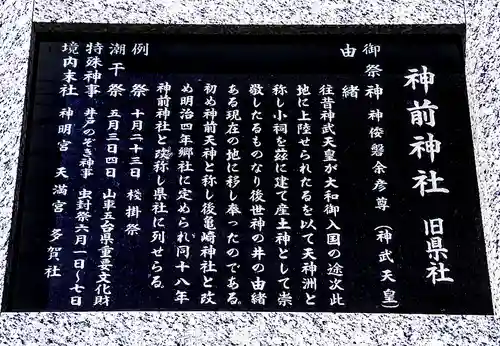 神前神社 旧県社
御祭神 神倭磐余彦尊(神武天皇)
由緒
往昔神武天皇が大和御入国の途次此
地に上陸せられたるを以て天神洲と
称し小祠を茲に建て産土神として崇
敬したるものなり後世神の井の由緒
ある現在の地に移し奉ったのである。
初め神前天神と称し後亀崎神社と改
め明治四年郷社に定められ同十八年
神前神社と改称し県社に列せらる
例祭 十月二十三日 桟掛祭
潮干祭 五月三日四日 山車五台県重要文化財
特殊神事 井戸のぞき神事 虫封祭六月一日〜七日
境内末社 神明宮 天満宮 多賀社